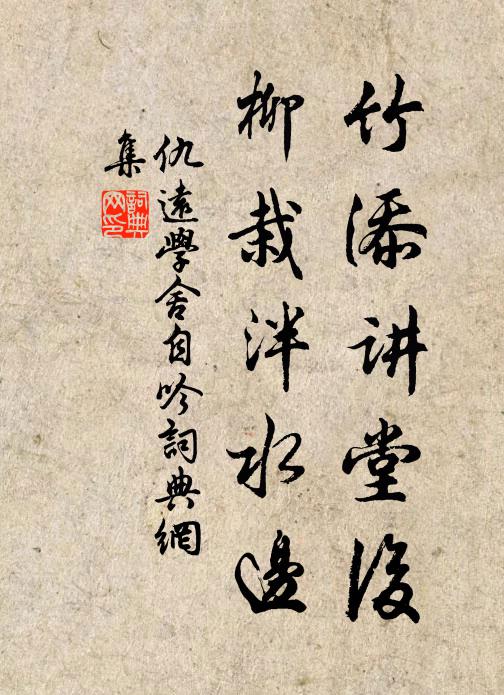 竹添讲堂後
柳栽泮水邊
仇遠學舍自吟詞典網
集
詞典
网印